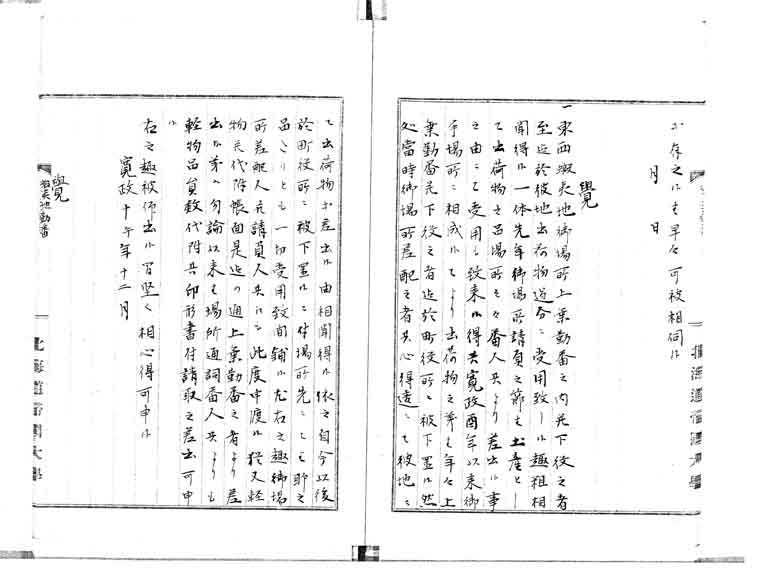 存之ハヽ早々可被相伺候
月 日
覺
一東西蝦夷地御場所上乗勤番之内并下役之者
至迄於彼地出荷物過分ニ受用致し候趣粗相
聞得候一体先年御場所請負之節も土産とし
て出荷物等品場所之番人共より差出候事
之由ニて受用も致来候得共寛政酉年以来御
手場所ニ相成候てより出荷物之等も年々上
乗勤番并下役之者迄於町役所ニ被下置候然
処當時御場所差配之者共心得違ニて彼地ニ
て出荷物等差出候由相聞得候依之自今以後
於町役所ニ被下置候ニ付場所先ニても聊之
品たりとも一切受用致間鋪候尤右之趣御場
所差配人并請負人共江も此度申渡候猶又軽
物共代附帳面是迄之通上乗勤番之者より差
出候等ハ勿論以来も場所通詞番人共よりも
軽物品員数代附共印形書付請取之差出可申
候
右之趣被仰出候間堅く相心得可申候
寛政十午年十二月
覺
蝦夷地勤番
北海道帝国大學
北海道帝国大學